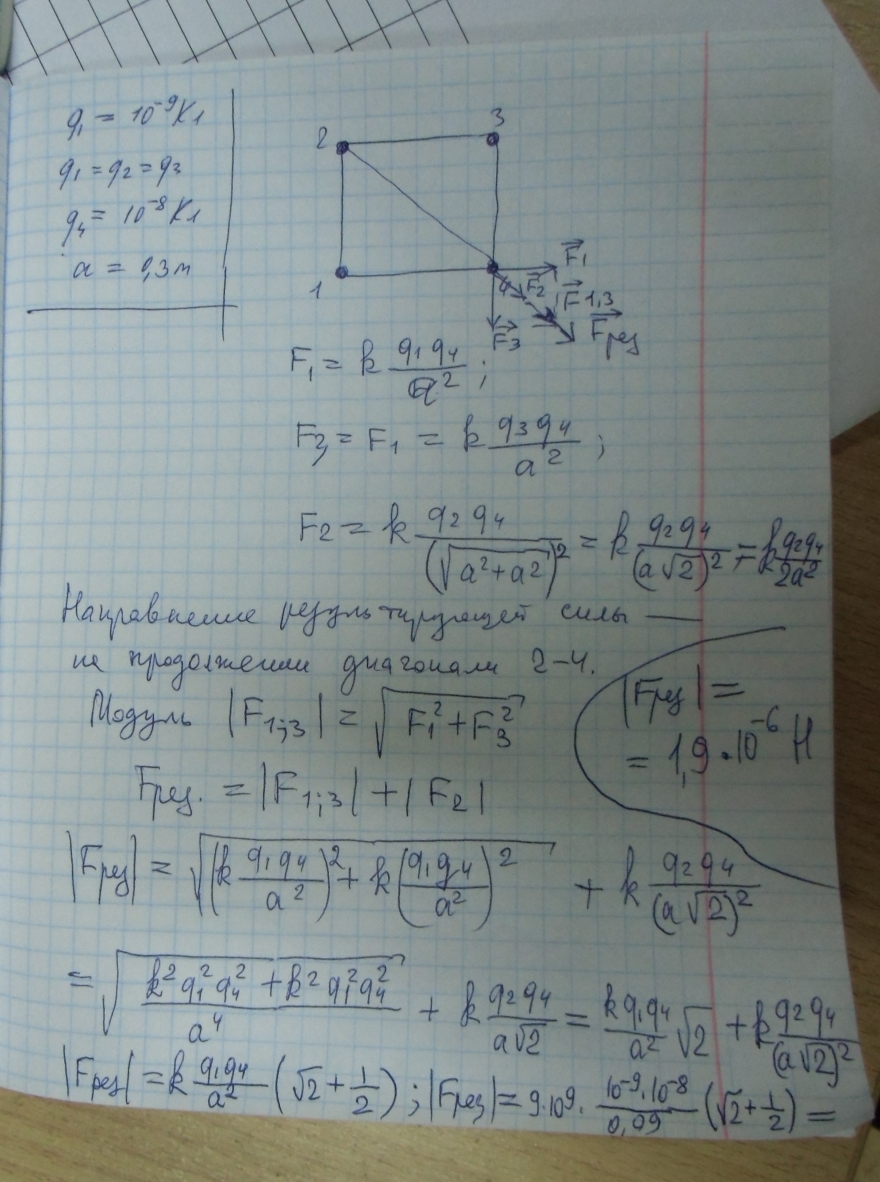 q₁ = 10⁻⁹ Кл
q₁ = q₂ = q₃
q₄ = 10⁻⁸ Кл
a = 0,3 м
2
3
1
4
F⃗₁
F⃗₂
F⃗1,3
F⃗₃
F⃗рез
F₁ = k q₁q₄/a² ;
F₃ = F₁ = k q₃q₄/a² ;
F₂ = k q₂q₄/(√(a²+a²))² = k q₂q₄/(a√2)² = k q₂q₄/2a²
Направление результирующей силы —
на продолжении диагонали 2-4.
Модуль |F₁;₃| = √(F₁² + F₃²)
Fрез. = |F₁;₃| + |F₂|
|Fрез| =
= 1,9·10⁻⁶ Н
|Fрез| = √((k q₁q₄/a²)² + k(q₁q₄/a²)²) + k q₂q₄/(a√2)²
= √((k²q₁²q₄² + k²q₁²q₄²)/a⁴) + k q₂q₄/a√2 = kq₁q₄/a² √2 + k q₂q₄/(a√2)²
|Fрез| = k q₁q₄/a² (√2 + 1/2) ; |Fрез| = 9·10⁹ · 10⁻⁹·10⁻⁸/0,09 (√2 + 1/2) =